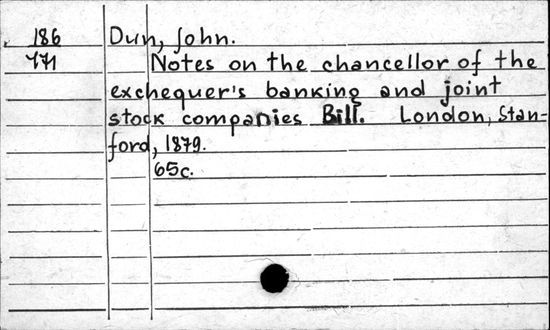 186 Dun, John.
771 Notes on the chancellor of the
exchequer's banking and joint
stock companies Bill. London, Stan=
ford, 1879.
65c.